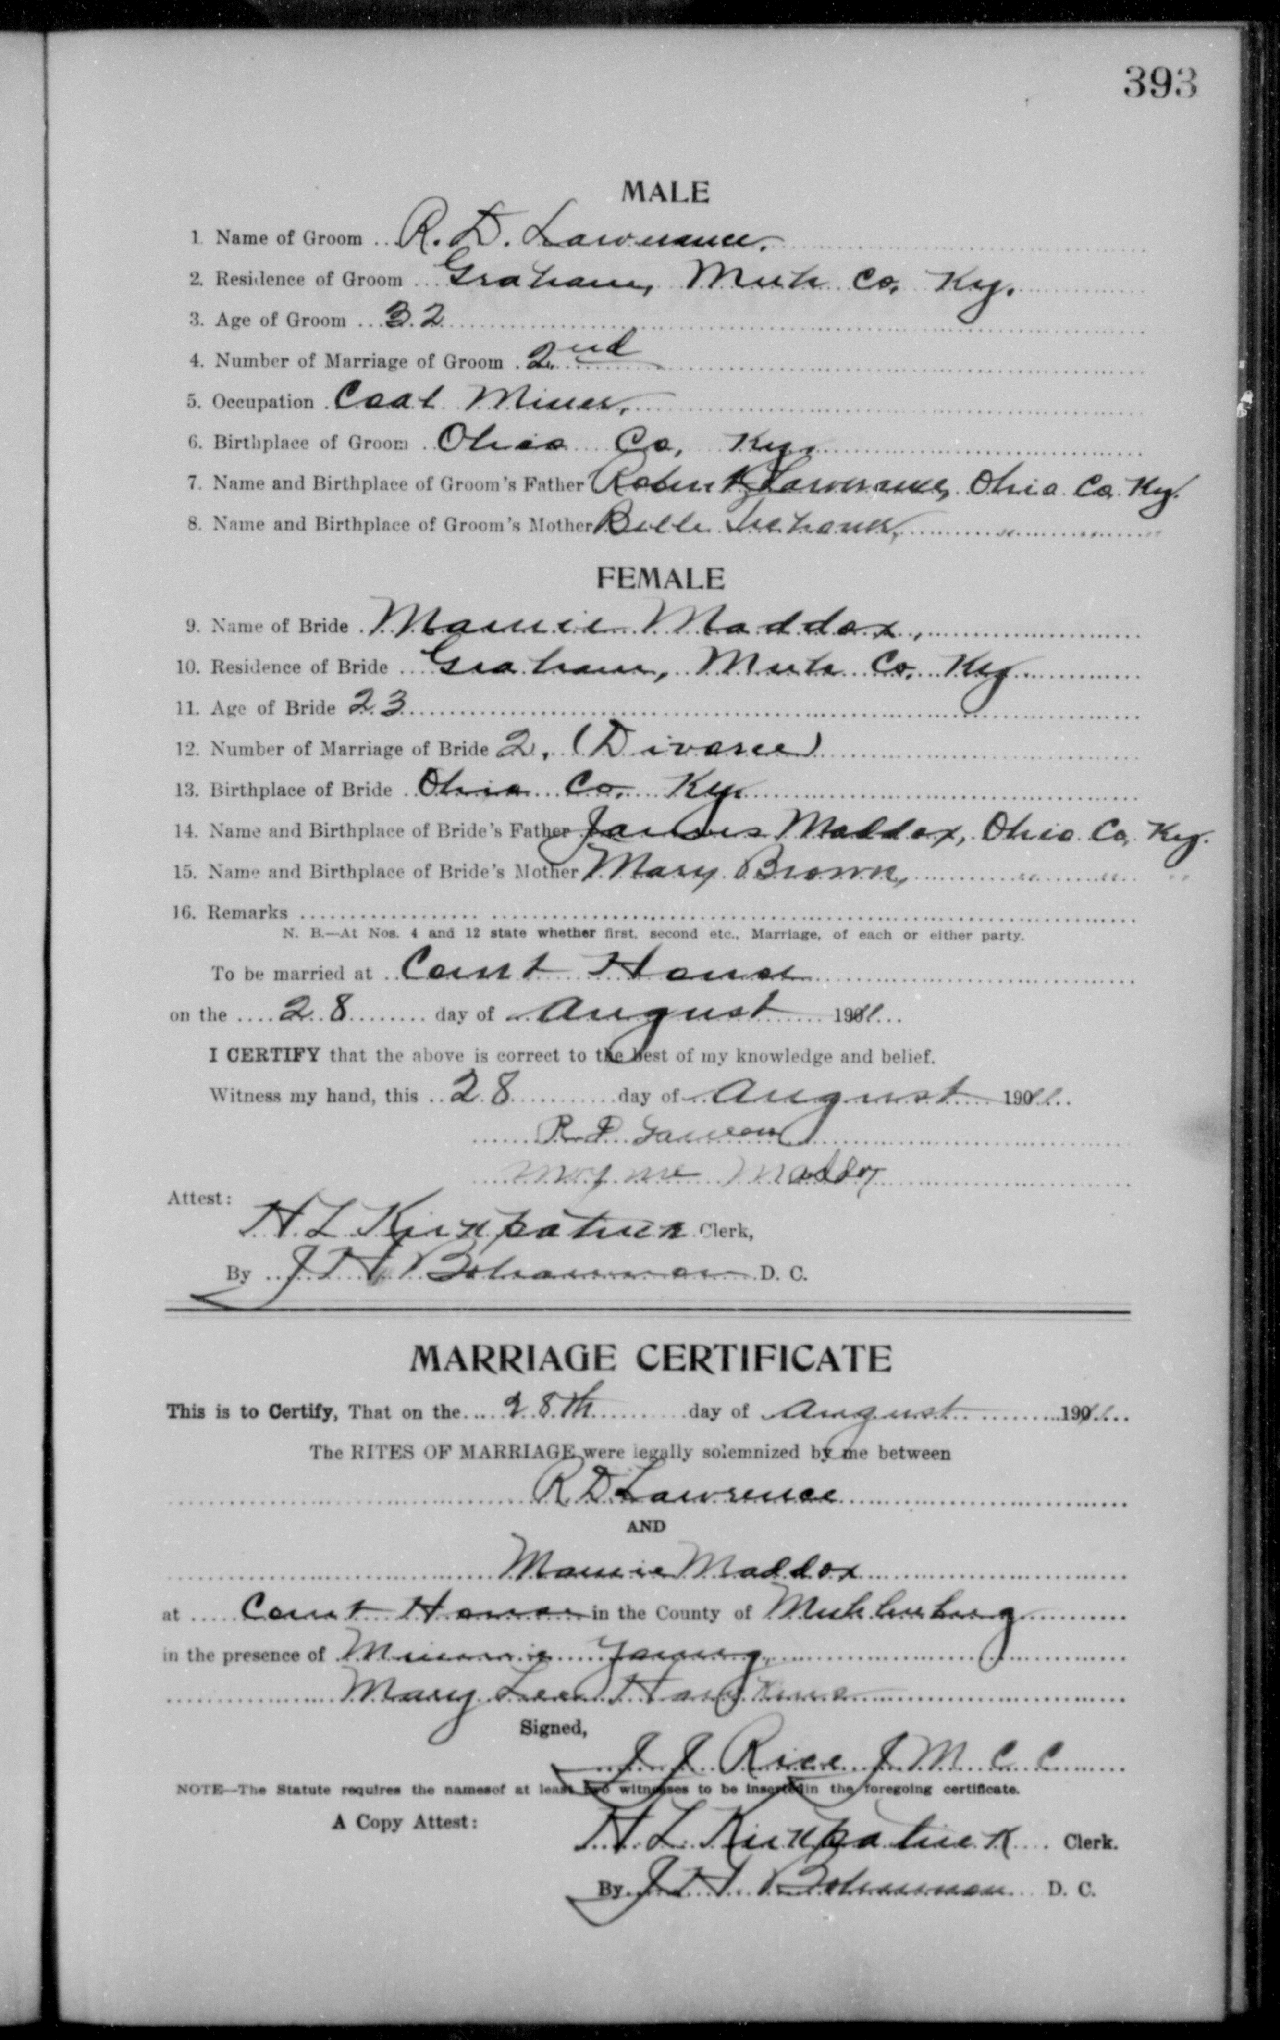 393
MALE
1. Name of Groom R. D. Lawrence.
2. Residence of Groom Graham, Muh Co. Ky.
3. Age of Groom 32
4. Number of Marriage of Groom 2nd
5. Occupation Coal Miner.
6. Birthplace of Groom Ohio Co. Ky.
7. Name and Birthplace of Groom's Father Robert Lawrence, Ohio Co. Ky.
8. Name and Birthplace of Groom's Mother Belle " " "
FEMALE
9. Name of Bride Mamie Maddox,
10. Residence of Bride Graham, Muh Co. Ky
11. Age of Bride 23
12. Number of Marriage of Bride 2. (Divorce)
13. Birthplace of Bride Ohio Co. Ky.
14. Name and Birthplace of Bride's Father James Maddox, Ohio Co, Ky.
15. Name and Birthplace of Bride's Mother Mary Brown, " " "
16. Remarks
N. B.—At Nos. 4 and 12 state whether first, second etc., Marriage, of each or either party.
To be married at Court House
on the 28 day of August 1911
I CERTIFY that the above is correct to the best of my knowledge and belief.
Witness my hand, this 28 day of August 1911
R. D.
Mayme Maddox
Attest:
H L Kirkpatrick Clerk,
By J H Bohannon D. C.
MARRIAGE CERTIFICATE
This is to Certify, That on the 28th day of August 1911
The RITES OF MARRIAGE were legally solemnized by me between
R. D. Lawrence
AND
Mamie Maddox
at Court House in the County of Muhlenberg
in the presence of Minnie Young,
Mary Lee Hawkins
Signed,
J J Rice J M C C
NOTE—The Statute requires the namesof at least two witnesses to be inserted in the foregoing certificate.
A Copy Attest:
H L Kirkpatrick Clerk.
By J H Bohannon D. C.